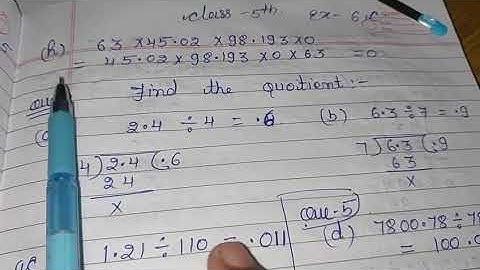 class-5th ex-6.C
(h) 63 x 45.02 x 98.193 x 0
= 45.02 x 98.193 x 0 x 63 = 0
Find the quoitient:-
2.4 ÷ 4 = .6 (b) 6.3 ÷ 7 = .9
4) 2.4 (.6
24
x
7) 6.3 (.9
63
x
1.21 ÷ 110 = .011
Que-5
(d) 7800.78 ÷ 7
= 100.0